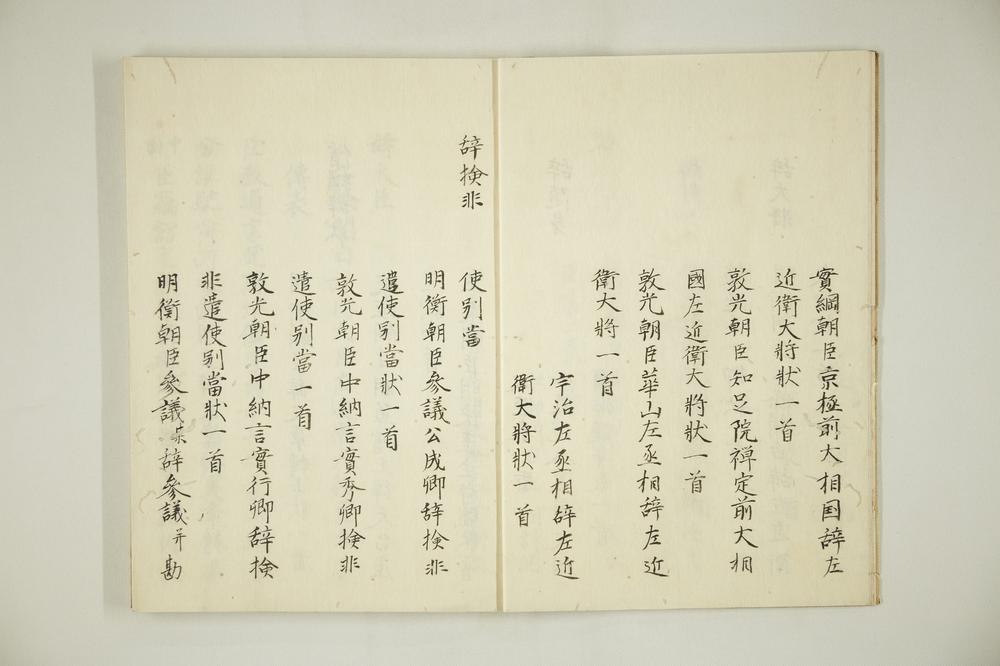 實綱朝臣京極前大相国辞左
近衛大将状一首
敦光朝臣知足院禅定前大相
國左近衛大将状一首
敦光朝臣華山左丞相辞左近
衛大将一首
宇治左丞相辞左近
衛大将状一首
辞検非
使別當
明衡朝臣参議公成卿辞検非
遣使別當状一首
敦光朝臣中納言實秀卿検非
遣使別當一首
敦光朝臣中納言實行卿辞検
非遣使別當状一首
明衡朝臣参議 辞参議并勘